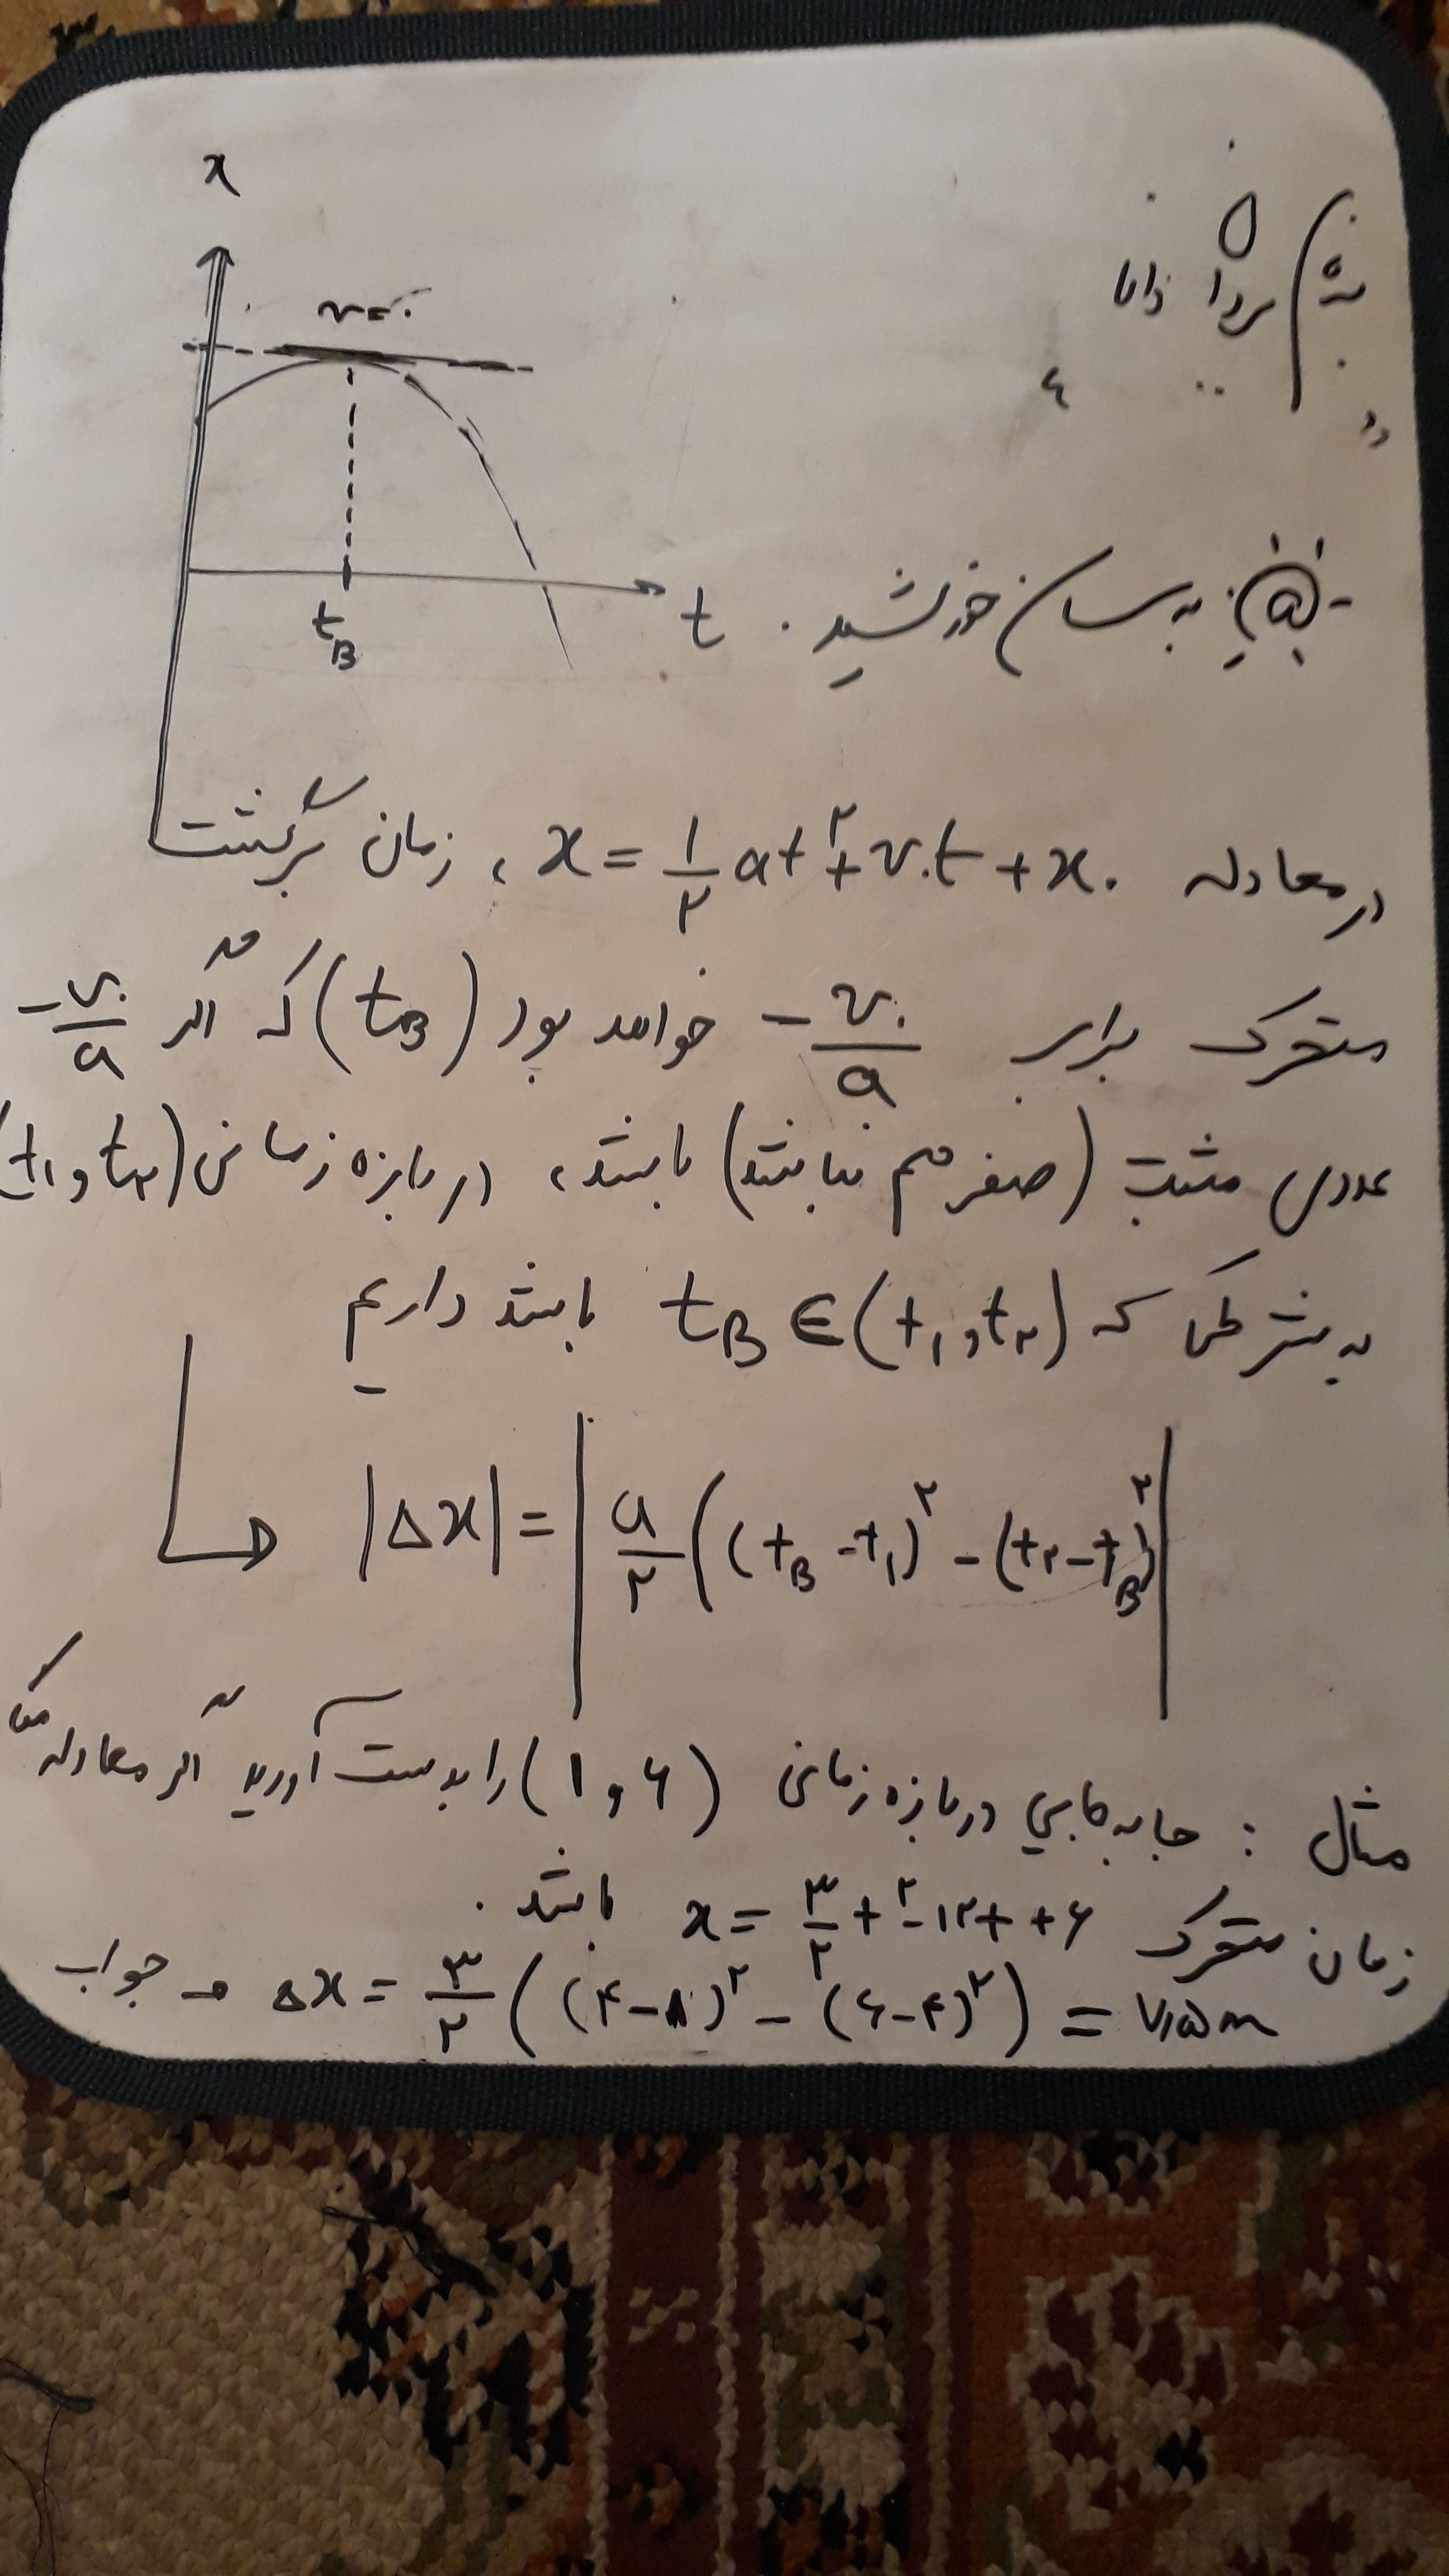 به نام یزدان دانا
x
v=۰
t_B
t
به سان خورشید.
در معادله x = ۱/۲ at² + v.t + x. ، زمان برگشت
متحرک برابر -v./a خواهد بود (t_B) که اگر -v./a
عددی مثبت (صفر هم نباشد) باشد، در بازه زمانی (t₁ و t₂)
به شرطی که t_B ∈ (t₁ و t₂) باشد داریم
|Δx| = | a/۲ ((t_B - t₁)² - (t₂ - t_B)² |
مثال : جابه‌جایی در بازه زمانی (۱ و ۶) را بدست آورید اگر معادله مکان
زمان متحرک x = ۳/۲ t² - ۱۲t + ۶ باشد.
جواب → Δx = ۳/۲ ((۴-۱)² - (۶-۴)²) = ۷٫۵m